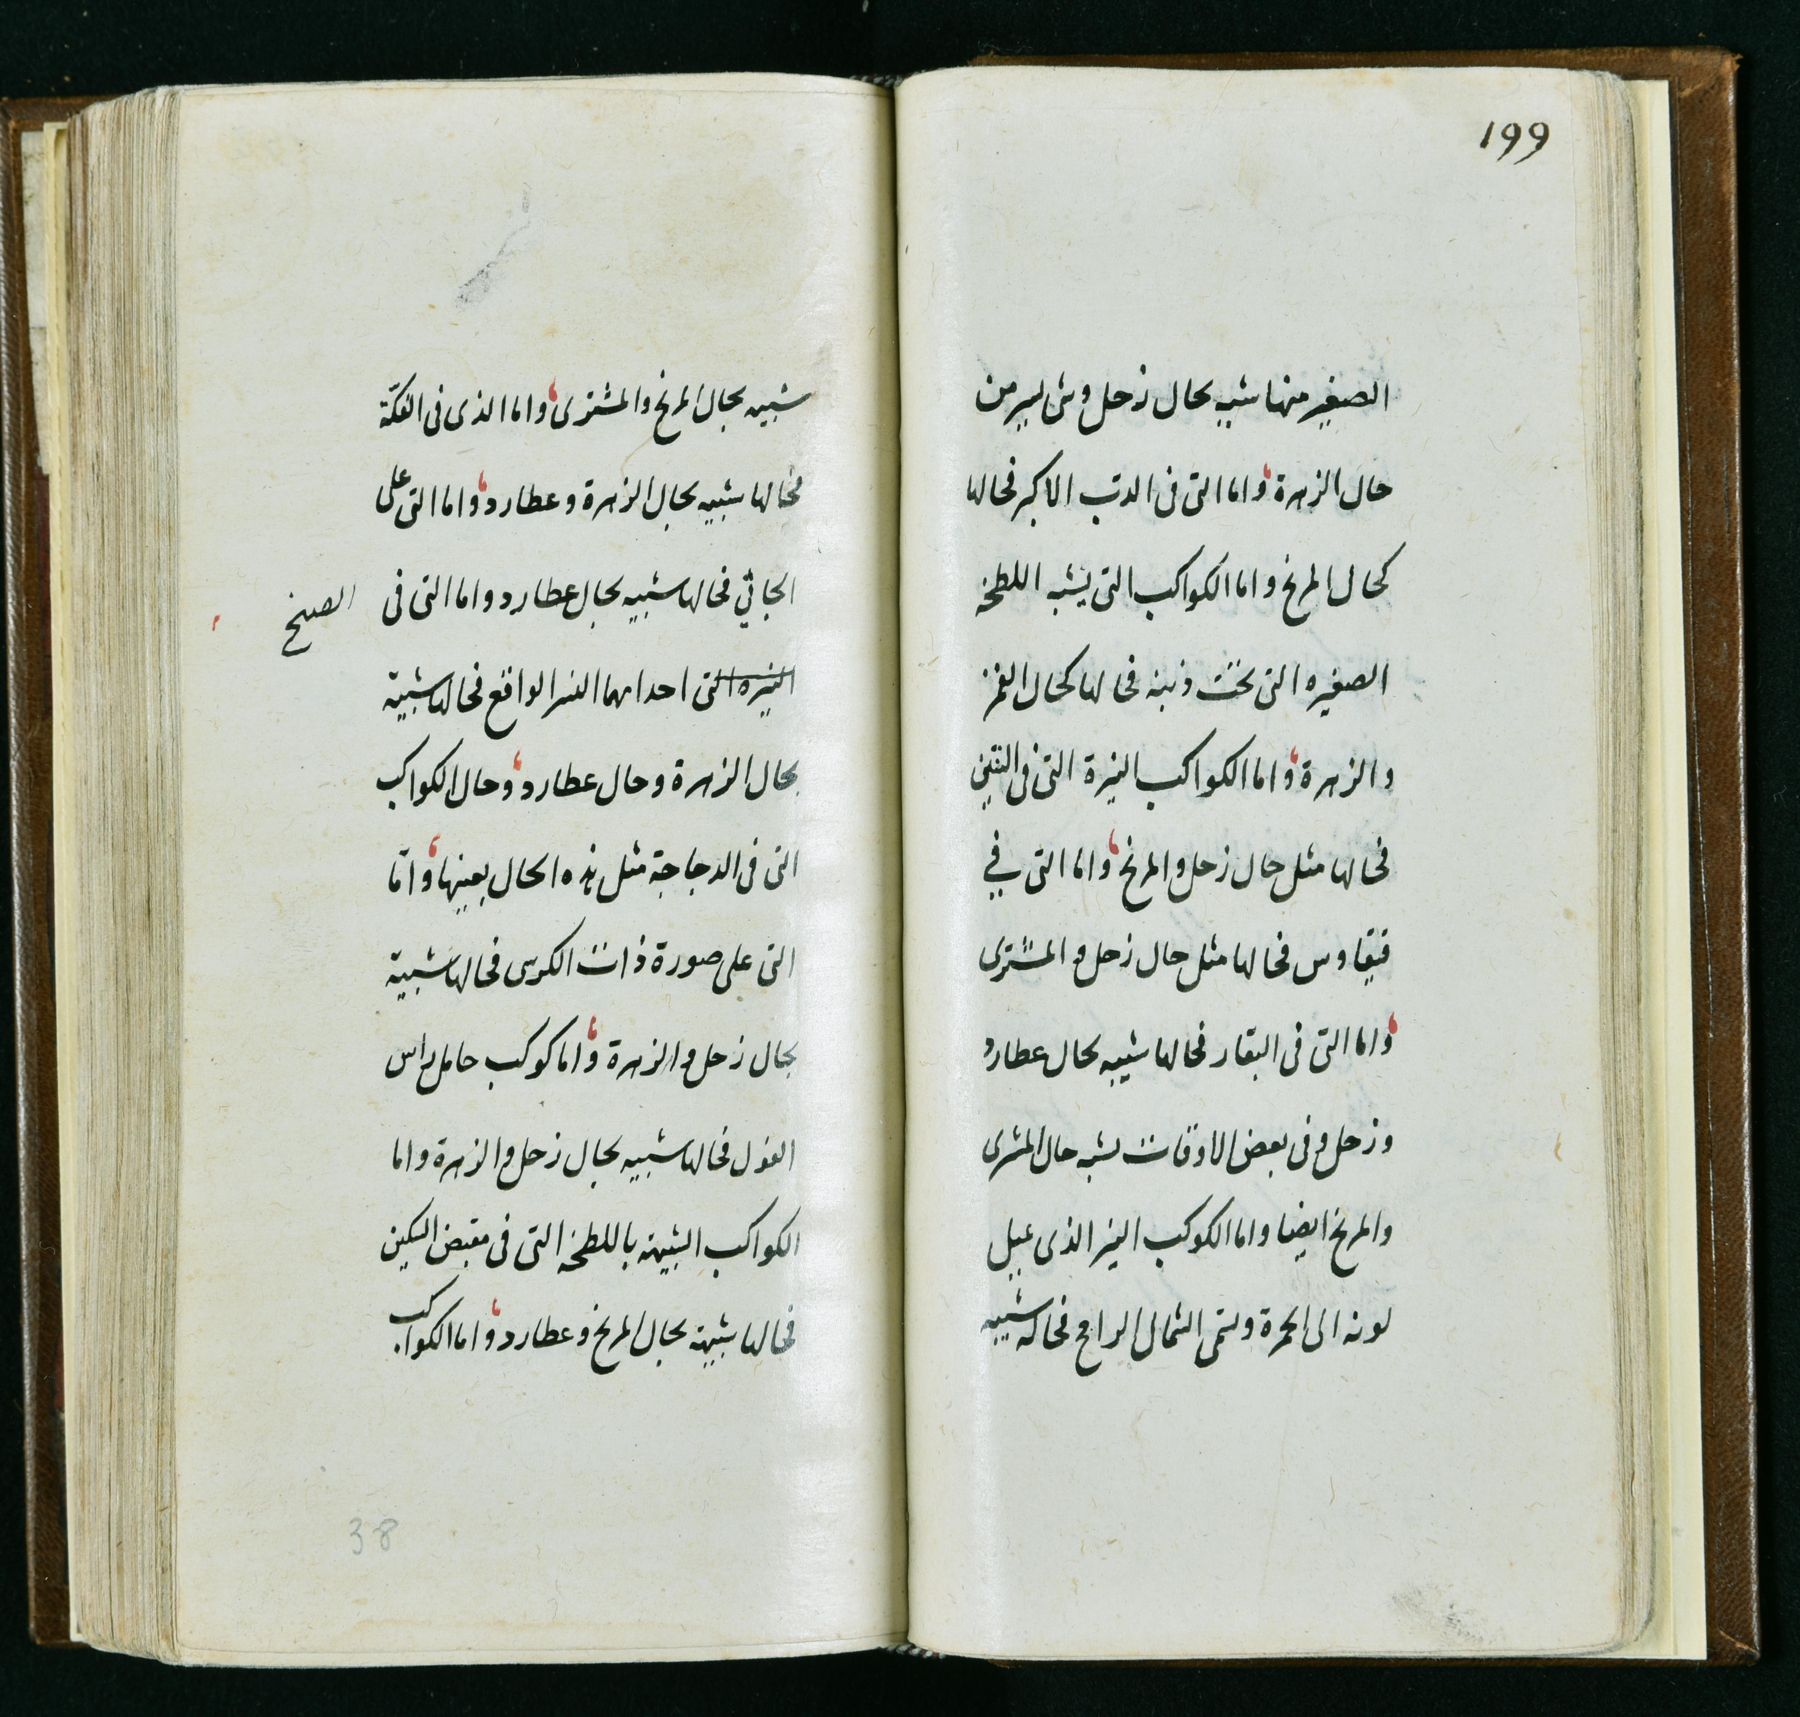 199
الصغير منها شبيه بحال زحل وشى يسير من
حال الزهرة واما التى فى الدب الاكبر فحالها
كحال المريخ واما الكواكب التى يشبه اللطخه
الصغيره التى تحت ذنبه فحالها كحال القمر
والزهرة واما الكواكب النيرة التى فى التنين
فحالها مثل حال زحل والمريخ واما التى في
قيقاوس فحالها مثل حال زحل و المشترى
واما التى فى البقار فحالها شبيه بحال عطارد
وزحل و فى بعض الاوقات يشبه حال المشترى
والمريخ ايضا واما الكوكب النير الذى يميل
لونه الى الحمرة ويسمى الشمال الرامح فحاله شبيه
شبيه بحال المريخ والمشترى واما الذى فى الفكة
فحالها شبيه بحال الزهرة وعطارد واما التى على
الجاثي فحالها شبيه بحال عطارد واما التى فى
الصنج
النيره التى احداهما النسر الواقع فحالها شبية
بحال الزهرة وحال عطارد وحال الكواكب
التى فى الدجاجة مثل هذه الحال بعينها وامّا
التى على صورة ذات الكرسى فحالها شبية
بحال زحل والزهرة واما كوكب حامل راس
الغول فحالها شبيه بحال زحل و الزهرة واما
الكواكب الشبيهة باللطخه التى فى مقبض السكين
فحالها شبيهة بحال المريخ وعطارد واما الكواكب
38